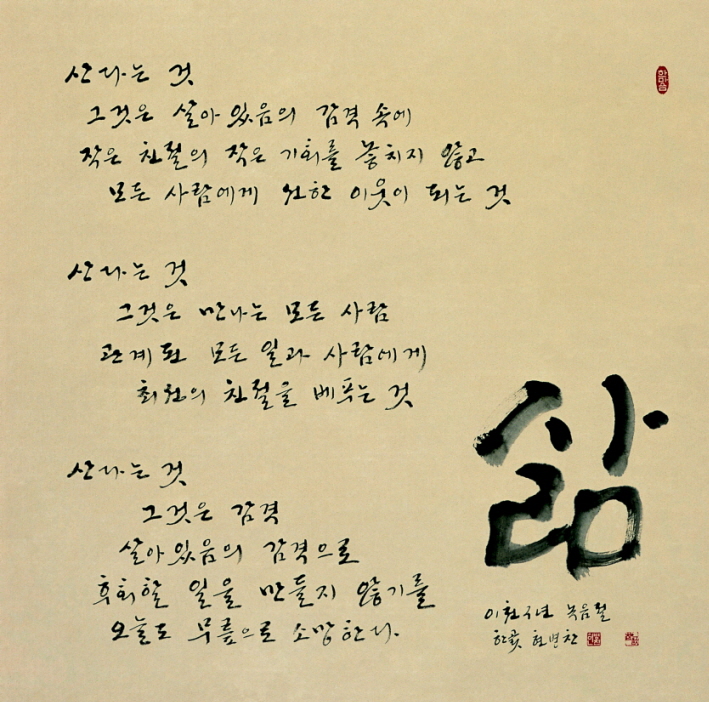 산다는 것
그것은 살아 있음의 감격 속에
작은 친절의 작은 기회를 놓치지 않고
모든 사람에게 선한 이웃이 되는 것
산다는 것
그것은 만나는 모든 사람
관계된 모든 일과 사람에게
최선의 친절을 베푸는 것
산다는 것
그것은 감격
살아있음의 감격으로
후회할 일을 만들지 않기를
오늘도 무릎으로 소망한다.
삶
이천구년 녹음절
현병찬